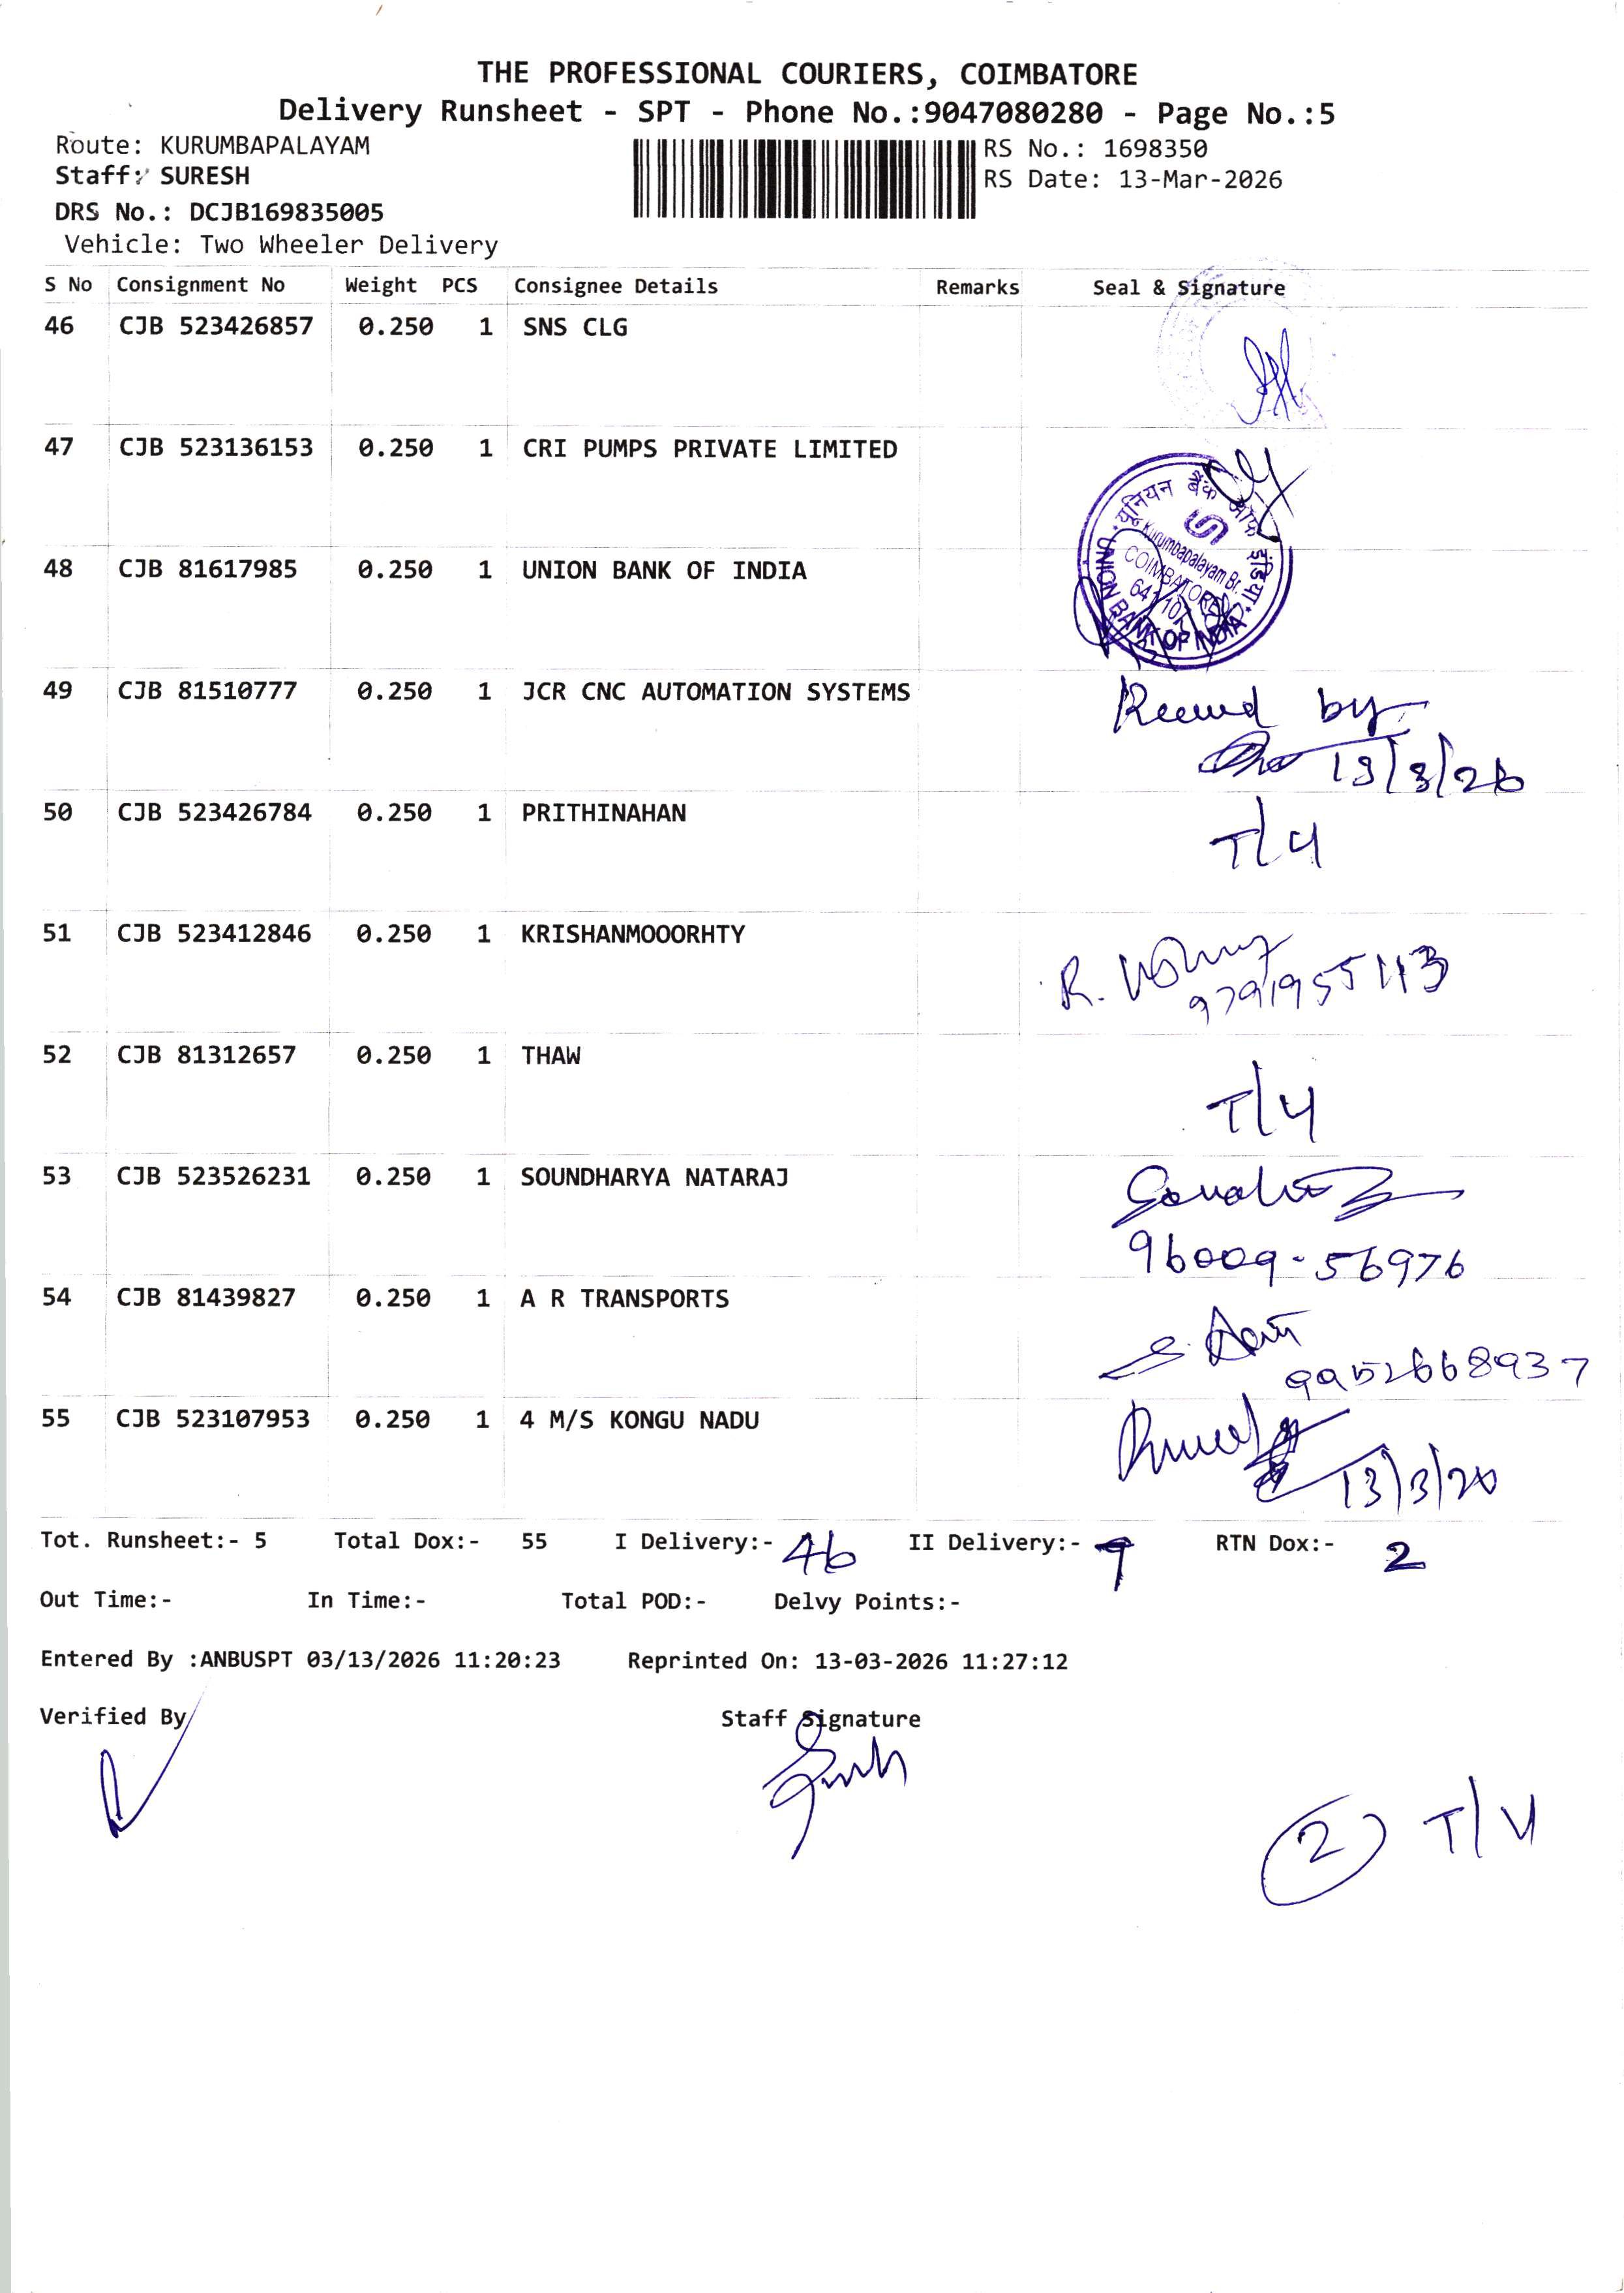 THE PROFESSIONAL COURIERS, COIMBATORE
Delivery Runsheet - SPT - Phone No.:9047080280 - Page No.:5
Route: KURUMBAPALAYAM
RS No.: 1698350
Staff: SURESH
RS Date: 13-Mar-2026
DRS No.: DCJB169835005
Vehicle: Two Wheeler Delivery
S No Consignment No Weight PCS Consignee Details Remarks Seal & Signature
46 CJB 523426857 0.250 1 SNS CLG
47 CJB 523136153 0.250 1 CRI PUMPS PRIVATE LIMITED
यूनियन बैंक ऑफ इंडिया
Kurumbapalayam Br.
COIMBATORE
UNION BANK OF INDIA
48 CJB 81617985 0.250 1 UNION BANK OF INDIA
49 CJB 81510777 0.250 1 JCR CNC AUTOMATION SYSTEMS
by
13/3/26
50 CJB 523426784 0.250 1 PRITHINAHAN
T/4
51 CJB 523412846 0.250 1 KRISHANMOOORHTY
R.
52 CJB 81312657 0.250 1 THAW
T/4
53 CJB 523526231 0.250 1 SOUNDHARYA NATARAJ
96009-56976
54 CJB 81439827 0.250 1 A R TRANSPORTS
9952668937
55 CJB 523107953 0.250 1 4 M/S KONGU NADU
Tot. Runsheet:- 5 Total Dox:- 55 I Delivery:- 46 II Delivery:- 9 RTN Dox:- 2
Out Time:- In Time:- Total POD:- Delvy Points:-
Entered By :ANBUSPT 03/13/2026 11:20:23 Reprinted On: 13-03-2026 11:27:12
Verified By Staff Signature
2 T/4